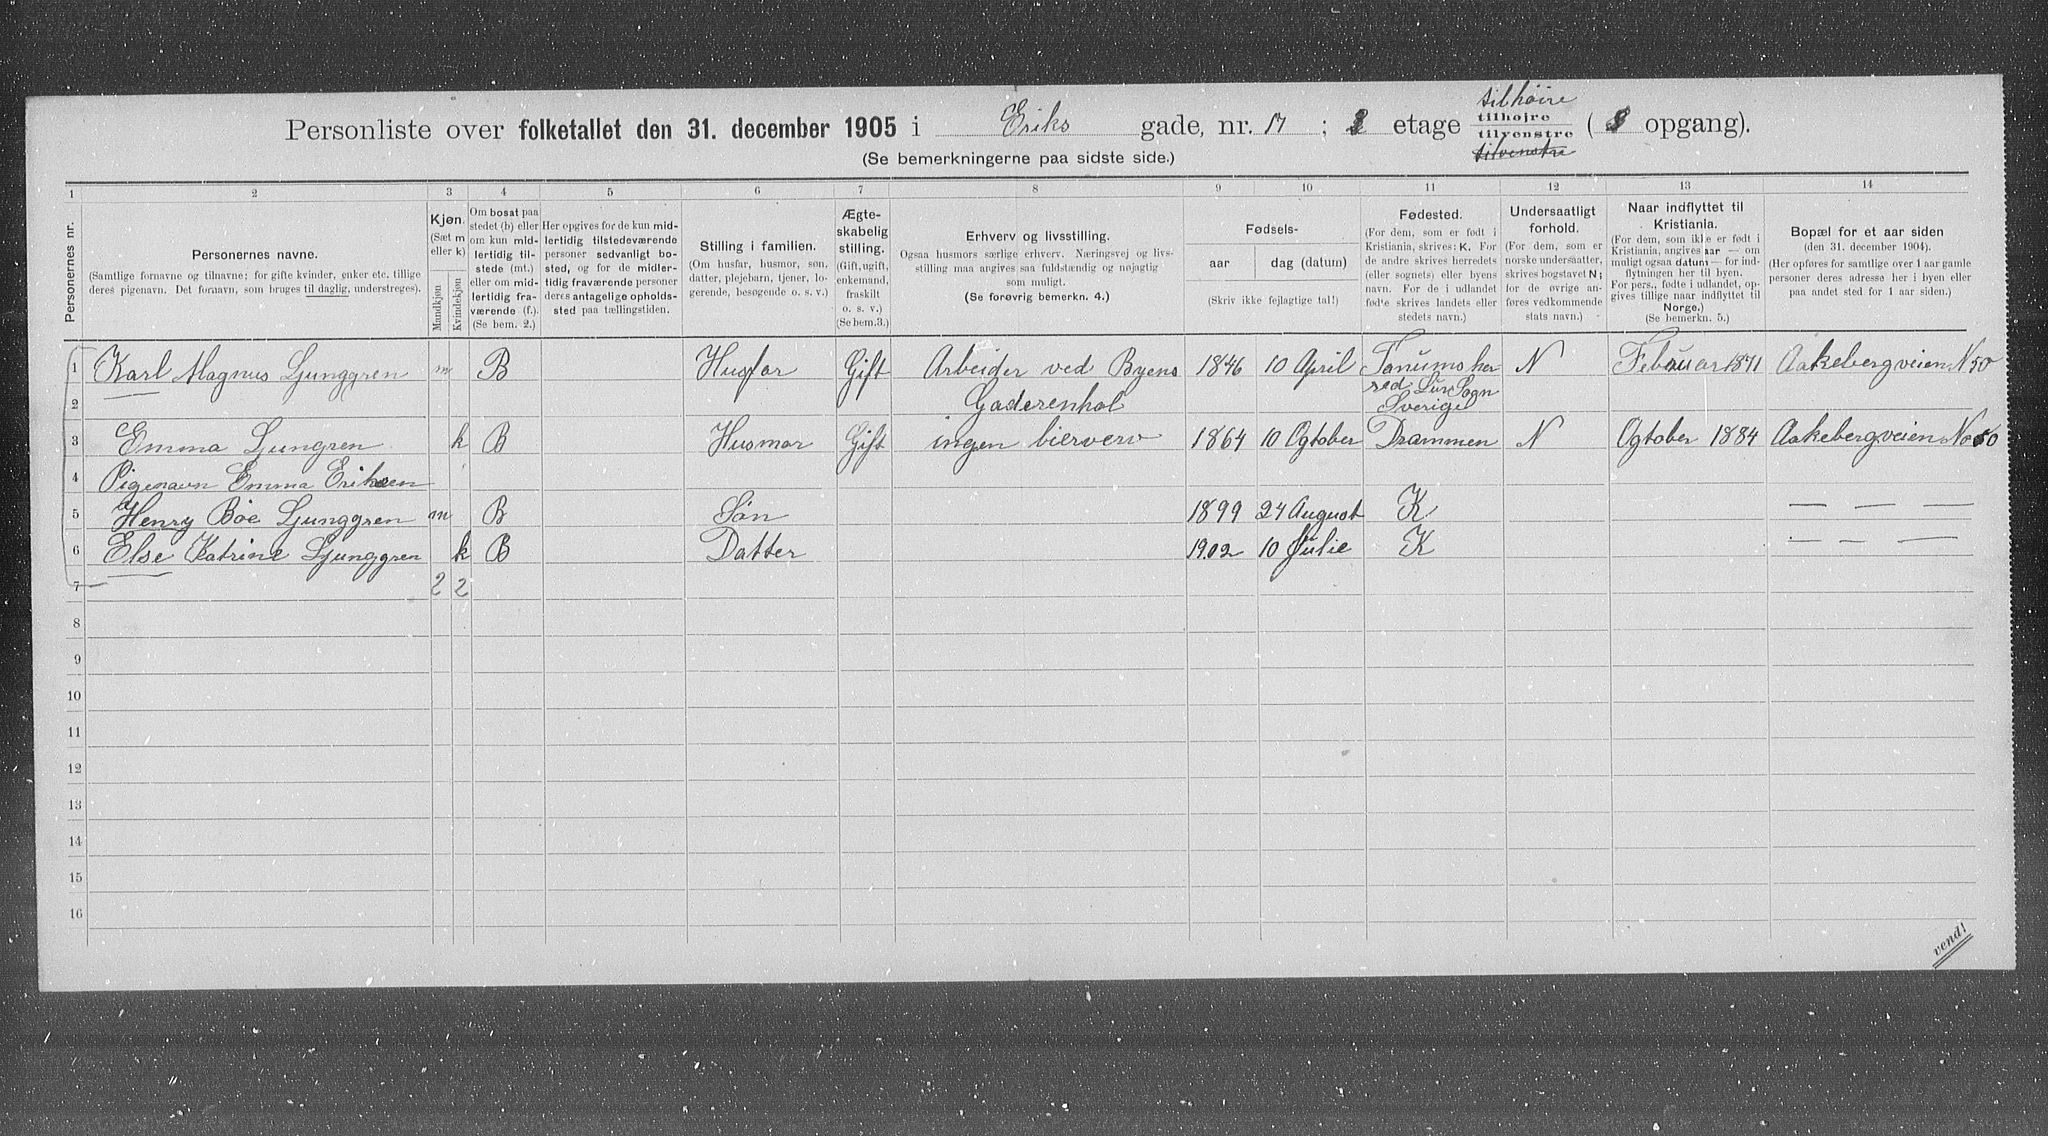 tilhöire
Personliste over folketallet den 31. december 1905 i Eriks gade, nr. 17 ; etage tilhøjre ( opgang).
tilvenstre
tilvenstre
(Se bemerkningerne paa sidste side.)
1 2 3 4 5 6 7 8 9 10 11 12 13 14
Personernes nr.
Personernes navne.
(Samtlige fornavne og tilnavne; for gifte kvinder, enker etc. tillige
deres pigenavn. Det fornavn, som bruges til daglig, understreges).
Kjøn.
(Sæt m
eller k)
Mandkjøn
Kvindekjøn
Om bosat paa
stedet (b) eller
om kun mid-
lertidig til-
stede (mt.)
eller om mid-
lertidig fra-
værende (f.).
(Se bem. 2.)
Her opgives for de kun mid-
lertidig tilstedeværende
personer sedvanlig bo-
sted, og for de midler-
tidig fraværende personer
deres antagelige opholds-
sted paa tællingstiden.
Stilling i familien.
(Om husfar, husmor, søn,
datter, plejebarn, tjener, lo-
gerende, besøgende o. s. v.)
Ægte-
skabelig
stilling.
(Gift, ugift,
enkemand,
fraskilt
o. s. v.)
(Se bem.3.)
Erhverv og livsstilling.
Ogsaa husmors særlige erhverv. Næringsvej og livs-
stilling maa angives saa fuldstændig og nøjagtig
som muligt.
(Se forøvrig bemerkn. 4.)
Fødsels-
aar dag (datum)
(Skriv ikke fejlagtige tal!)
Fødested.
(For dem, som er født i
Kristiania, skrives: K. For
de andre skrives herredets
(eller sognets) eller byens
navn. For de i udlandet
fødte skrives landets eller
stedets navn.)
Undersaatligt
forhold.
(For dem, som er
norske undersaatter,
skrives bogstavet N;
for de øvrige an-
føres vedkommende
stats navn.)
Naar indflyttet til
Kristiania.
(For dem, som ikke er født i
Kristiania, angives aar — om
muligt ogsaa datum — for ind-
flytningen her til byen.
For pers., fødte i udlandet, op-
gives tillige naar indflyttet til
Norge.)
(Se bemerkn. 5.)
Bopæl for et aar siden
(den 31. december 1904).
(Her opføres for samtlige over 1 aar gamle
personer deres adresse her i byen eller
paa andet sted for 1 aar siden.)
1 Karl Magnus Ljunggren m B Husfar Gift Arbeider ved Byens 1846 10 April Tanums her Februar 1871 Aakebergveien N 50
2 Gaderenhol red Lur Sogn N
Sverige
3 Emma Ljungren k B Husmor Gift ingen bierverv 1864 10 Ogtober Drammen N Ogtober 1884 Aakebergveien No 50
4 Pigenavn Emma Eriksen
5 Henry Böe Ljunggren m B Sön 1899 24 August K — — —
6 Else Katrine Ljunggren k B Datter 1902 10 Julie K — — —
7 2 2
8
9
10
11
12
13
14
15
16
vend!